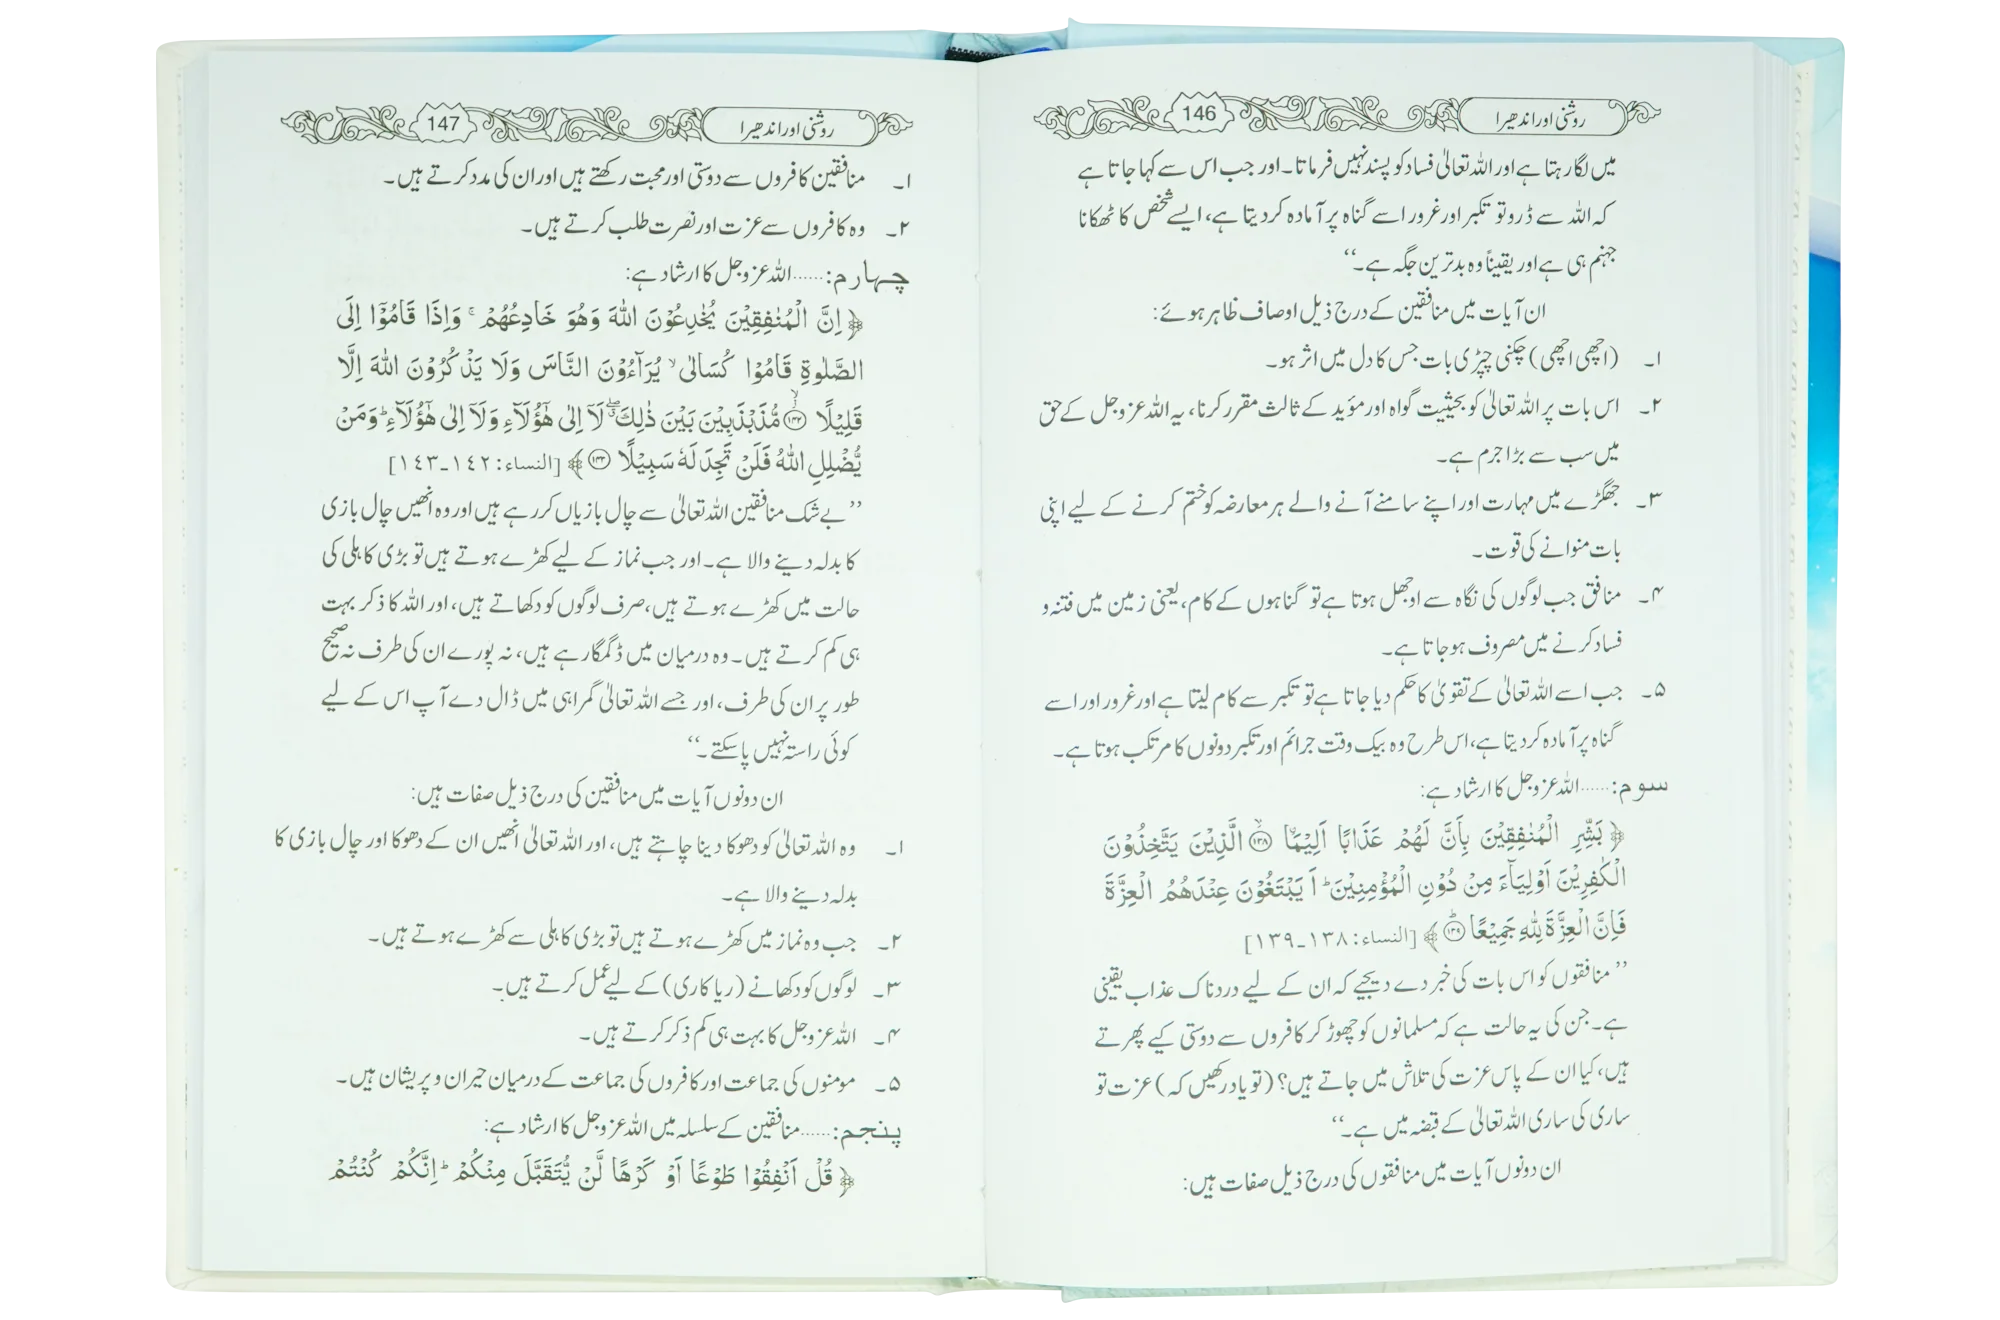 روشنی اور اندھیرا
146
میں لگا رہتا ہے اور اللہ تعالیٰ فساد کو پسند نہیں فرماتا۔ اور جب اس سے کہا جاتا ہے
کہ اللہ سے ڈرو تو تکبر اور غرور اسے گناہ پر آمادہ کر دیتا ہے، ایسے شخص کا ٹھکانا
جہنم ہی ہے اور یقیناً وہ بدترین جگہ ہے۔‘‘
ان آیات میں منافقین کے درج ذیل اوصاف ظاہر ہوئے:
۱۔ (اچھی اچھی) چکنی چپڑی بات جس کا دل میں اثر ہو۔
۲۔ اس بات پر اللہ تعالیٰ کو بحیثیت گواہ اور مؤید کے ثالث مقرر کرنا، یہ اللہ عزوجل کے حق
میں سب سے بڑا جرم ہے۔
۳۔ جھگڑے میں مہارت اور اپنے سامنے آنے والے ہر معارضہ کو ختم کرنے کے لیے اپنی
بات منوانے کی قوت۔
۴۔ منافق جب لوگوں کی نگاہ سے اوجھل ہوتا ہے تو گناہوں کے کام، یعنی زمین میں فتنہ و
فساد کرنے میں مصروف ہو جاتا ہے۔
۵۔ جب اسے اللہ تعالیٰ کے تقویٰ کا حکم دیا جاتا ہے تو تکبر سے کام لیتا ہے اور غرور اور اسے
گناہ پر آمادہ کر دیتا ہے، اس طرح وہ بیک وقت جرائم اور تکبر دونوں کا مرتکب ہوتا ہے۔
سوم:...... اللہ عزوجل کا ارشاد ہے:
﴿بَشِّرِ الْمُنٰفِقِیْنَ بِاَنَّ لَهُمْ عَذَابًا اَلِیْمَا ۙ۝۱۳۸ الَّذِیْنَ یَتَّخِذُوْنَ
الْكٰفِرِیْنَ اَوْلِیَآءَ مِنْ دُوْنِ الْمُؤْمِنِیْنَ ؕ اَ یَبْتَغُوْنَ عِنْدَهُمُ الْعِزَّةَ
فَاِنَّ الْعِزَّةَ لِلّٰهِ جَمِیْعًا ؕ۝۱۳۹﴾ [النساء: ۱۳۸۔۱۳۹]
’’منافقوں کو اس بات کی خبر دے دیجیے کہ ان کے لیے دردناک عذاب یقینی
ہے۔ جن کی یہ حالت ہے کہ مسلمانوں کو چھوڑ کر کافروں سے دوستی کیے پھرتے
ہیں، کیا ان کے پاس عزت کی تلاش میں جاتے ہیں؟ (تو یاد رکھیں کہ) عزت تو
ساری کی ساری اللہ تعالیٰ کے قبضہ میں ہے۔‘‘
ان دونوں آیات میں منافقوں کی درج ذیل صفات ہیں:
روشنی اور اندھیرا
147
۱۔ منافقین کافروں سے دوستی اور محبت رکھتے ہیں اور ان کی مدد کرتے ہیں۔
۲۔ وہ کافروں سے عزت اور نصرت طلب کرتے ہیں۔
چہارم:...... اللہ عزوجل کا ارشاد ہے:
﴿اِنَّ الْمُنٰفِقِیْنَ یُخٰدِعُوْنَ اللّٰهَ وَهُوَ خَادِعُهُمْ ۚ وَاِذَا قَامُوْۤا اِلَی
الصَّلٰوةِ قَامُوْا كُسَالٰی ۙ یُرَآءُوْنَ النَّاسَ وَلَا یَذْكُرُوْنَ اللّٰهَ اِلَّا
قَلِیْلًا ۙ۝۱۴۲ مُّذَبْذَبِیْنَ بَیْنَ ذٰلِكَ ۖۗ لَاۤ اِلٰی هٰۤؤُلَآءِ وَلَاۤ اِلٰی هٰۤؤُلَآءِ ؕ وَمَنْ
یُّضْلِلِ اللّٰهُ فَلَنْ تَجِدَ لَهٗ سَبِیْلًا ۝۱۴۳﴾ [النساء: ۱۴۲۔۱۴۳]
’’بے شک منافقین اللہ تعالیٰ سے چال بازیاں کر رہے ہیں اور وہ انھیں چال بازی
کا بدلہ دینے والا ہے۔ اور جب نماز کے لیے کھڑے ہوتے ہیں تو بڑی کاہلی کی
حالت میں کھڑے ہوتے ہیں، صرف لوگوں کو دکھاتے ہیں، اور اللہ کا ذکر بہت
ہی کم کرتے ہیں۔ وہ درمیان میں ڈگمگا رہے ہیں، نہ پورے ان کی طرف نہ صحیح
طور پر ان کی طرف، اور جسے اللہ تعالیٰ گمراہی میں ڈال دے آپ اس کے لیے
کوئی راستہ نہیں پا سکتے۔‘‘
ان دونوں آیات میں منافقین کی درج ذیل صفات ہیں:
۱۔ وہ اللہ تعالیٰ کو دھوکا دینا چاہتے ہیں، اور اللہ تعالیٰ انھیں ان کے دھوکا اور چال بازی کا
بدلہ دینے والا ہے۔
۲۔ جب وہ نماز میں کھڑے ہوتے ہیں تو بڑی کاہلی سے کھڑے ہوتے ہیں۔
۳۔ لوگوں کو دکھانے (ریا کاری) کے لیے عمل کرتے ہیں۔
۴۔ اللہ عزوجل کا بہت ہی کم ذکر کرتے ہیں۔
۵۔ مومنوں کی جماعت اور کافروں کی جماعت کے درمیان حیران و پریشان ہیں۔
پنجم:...... منافقین کے سلسلہ میں اللہ عزوجل کا ارشاد ہے:
﴿قُلْ اَنْفِقُوْا طَوْعًا اَوْ كَرْهًا لَّنْ یُّتَقَبَّلَ مِنْكُمْ ؕ اِنَّكُمْ كُنْتُمْ